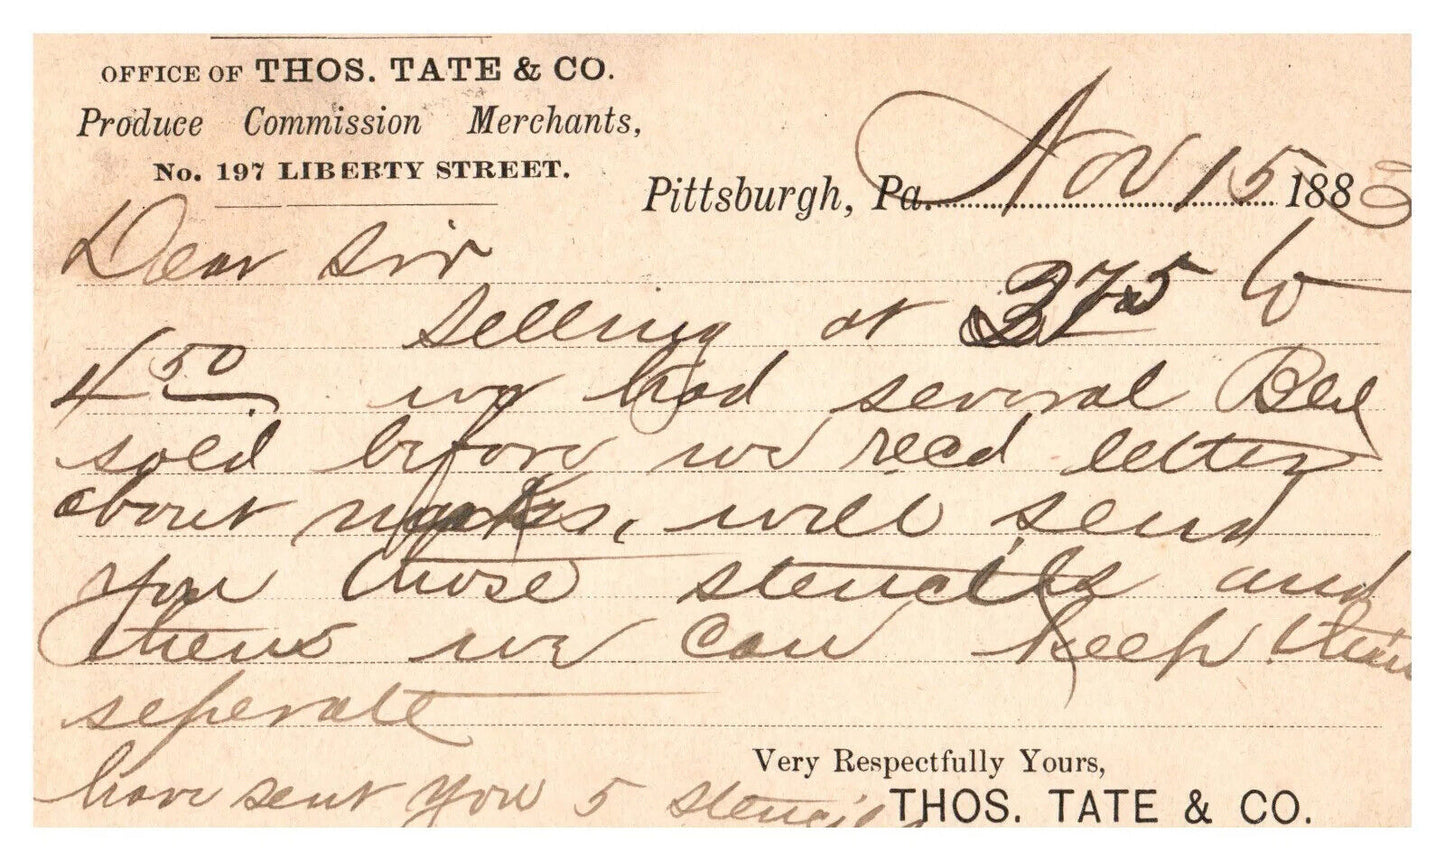 OFFICE OF THOS. TATE & CO.
Produce Commission Merchants,
No. 197 LIBERTY STREET.
Pittsburgh, Pa. Nov 15 188
Dear Sir
Selling at 375 to
4 50 we had several Bbl
sold before we recd letter
about marks, will send
you those stencills and
then we can keep them
seperate
have sent you 5 stencils
Very Respectfully Yours,
THOS. TATE & CO.